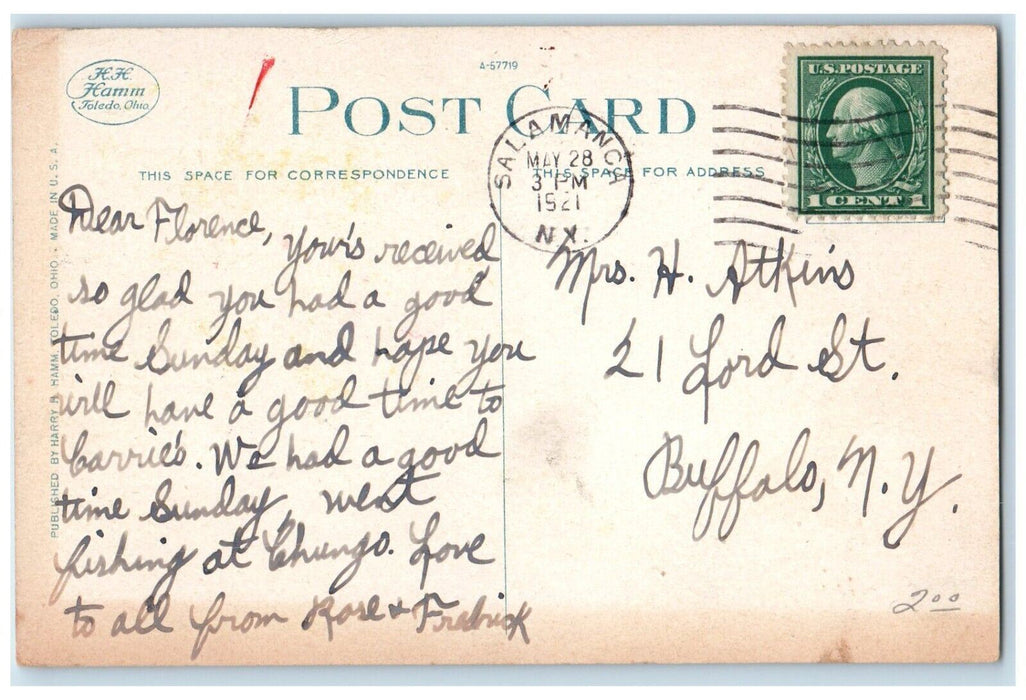 H.H.
Hamm
Toledo, Ohio
A-57719
POST CARD
U.S. POSTAGE
1 CENT 1
SALAMANCA
MAY 28
3 PM
1921
N.Y.
THIS SPACE FOR CORRESPONDENCE
THIS SPACE FOR ADDRESS
PUBLISHED BY HARRY H. HAMM, TOLEDO, OHIO. MADE IN U. S. A.
Dear Florence,
Your's received
so glad you had a good
time Sunday and hope you
will have a good time to
Carrie's. We had a good
time Sunday, went
fishing at Chungo. Love
to all from Rose & Fredrick
Mrs. H. Atkins
21 Lord St.
Buffalo, N.Y.
2.00